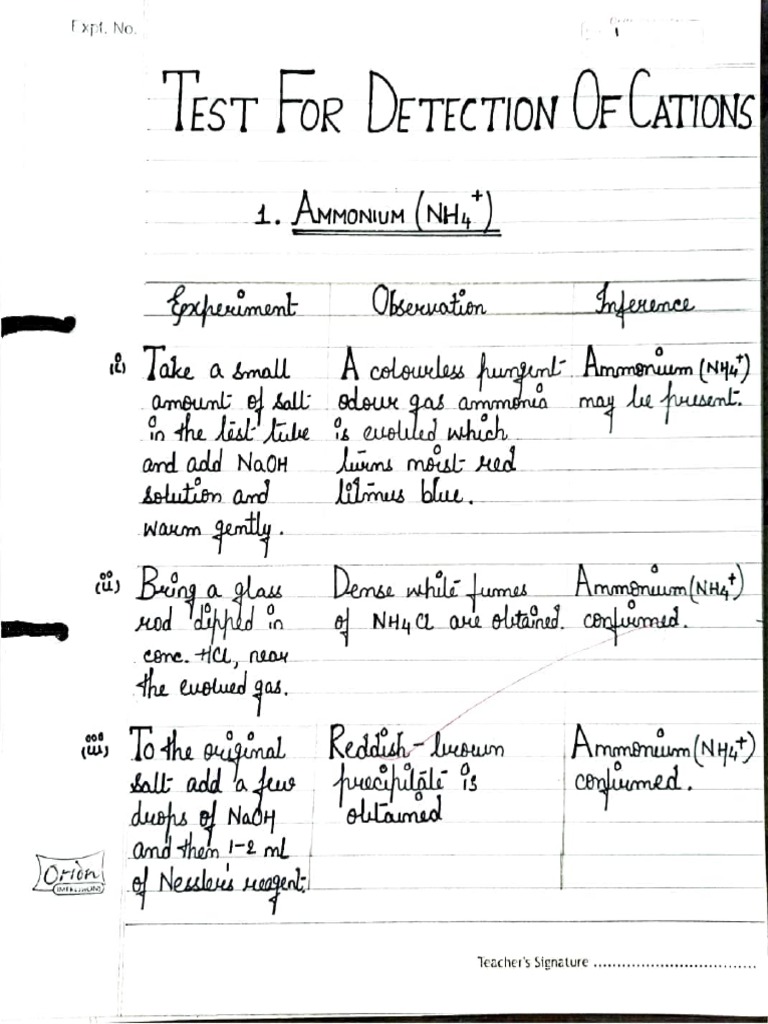 Expt. No.
1
TEST FOR DETECTION OF CATIONS
1. AMMONIUM (NH4+)
Experiment Observation Inference
(i) Take a small A colourless pungent Ammonium (NH4+)
amount of salt odour gas ammonia may be present.
in the test tube is evolved which
and add NaOH turns moist red
solution and litmus blue.
warm gently.
(ii) Bring a glass Dense white fumes Ammonium (NH4+)
rod dipped in of NH4Cl are obtained. confirmed.
conc. HCl, near
the evolved gas.
(iii) To the original Reddish-brown Ammonium (NH4+)
salt add a few precipitate is confirmed.
drops of NaOH obtained
and then 1-2 ml
of Nessler's reagent.
Orion
Teacher's Signature ..................................